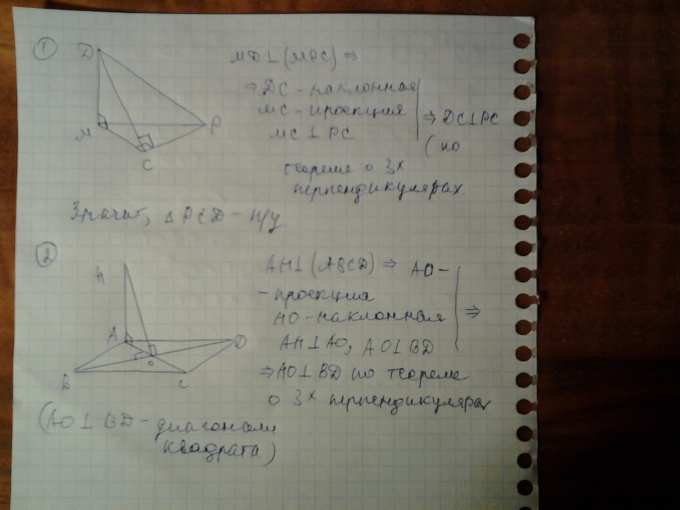 1
D
M
P
C
MD ⊥ (MPC) ⇒
⇒ DC - наклонная
MC - проекция
MC ⊥ PC
⇒ DC ⊥ PC
(по
теореме о 3х
перпендикулярах
Значит, △ PCD - п/у
2
H
A
D
O
B
C
AH ⊥ (ABCD) ⇒ AO -
- проекция
HO - наклонная
AH ⊥ AO, AO ⊥ BD
⇒
⇒ HO ⊥ BD по теореме
о 3х перпендикулярах
(AO ⊥ BD - диагонали
квадрата)